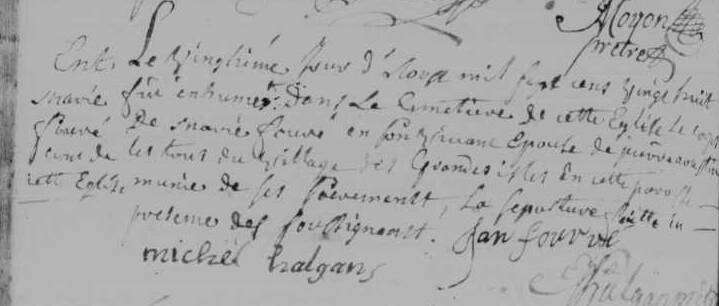 Moyon
prêtre
Ent. Le vingtième Jour d'Aoust mil sept cens vingt huit
marie fut enhumer Dans Le Cimetiere de cette Eglise Le corps
fouvé De marie fouvé en son vivant Epouse de pierre
du village des Grandes isles En cette paroisse
cette Eglise munie de ses sacrements, La sepulture faitte in
presence des soussigneant. Jan fourvé
michel halgans